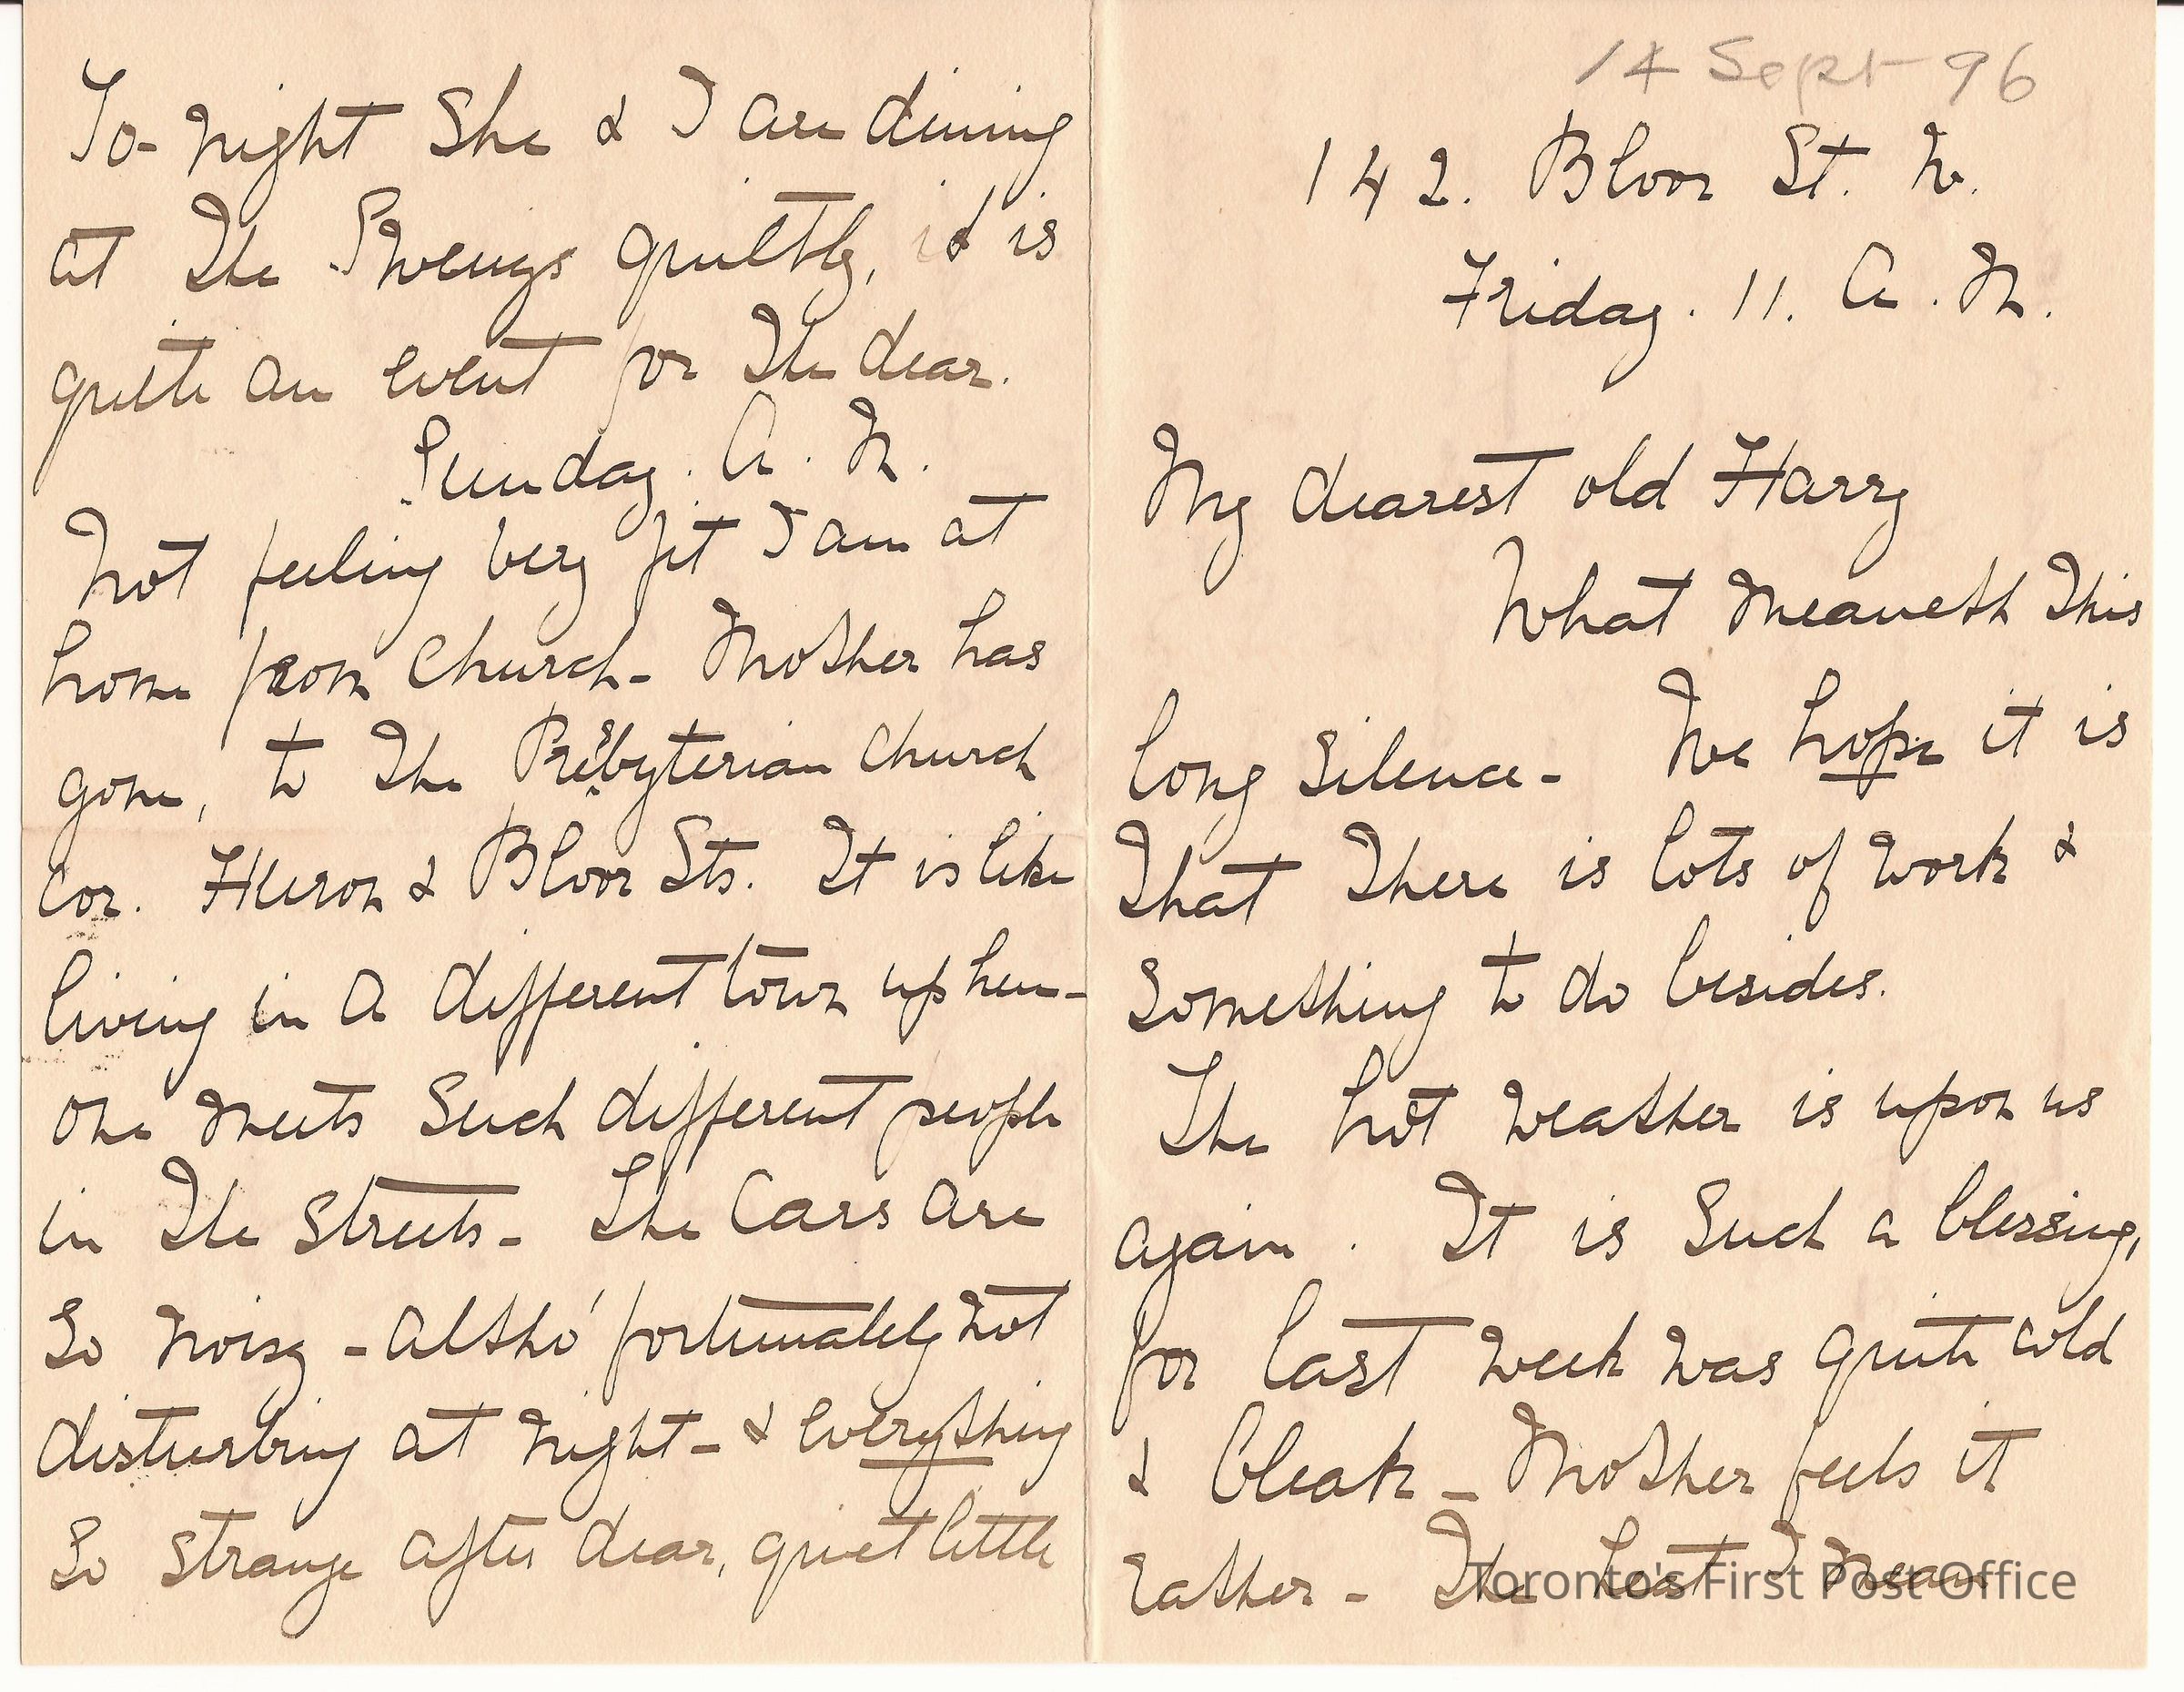 14 Sept 96
142. Bloor St. W.
Friday. 11. A. M.
My dearest old Harry
What meaneth this
long silence - We hope it is
that there is lots of work &
something to do besides.
The hot weather is upon us
again. It is such a blessing,
for last week was quite cold
& bleak - Mother feels it
rather - The heat I mean
To-night she & I are dining
at the Swenys quietly, it is
quite an event for the dear.
Sunday. A. M.
Not feeling very fit I am at
home from Church - Mother has
gone, to the Presbyterian Church
Cor. Huron & Bloor Sts. It is like
living in a different town up here -
One meets such different people
in the streets - The Cars are
so noisy - altho' fortunately not
disturbing at night - & everything
so strange after dear, quiet little
Toronto's First Post Office